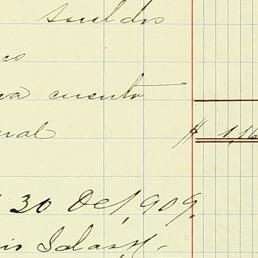 sueldos
co
va cuenta
ral $ 1,16
30 De 1,909,
is Salas H-